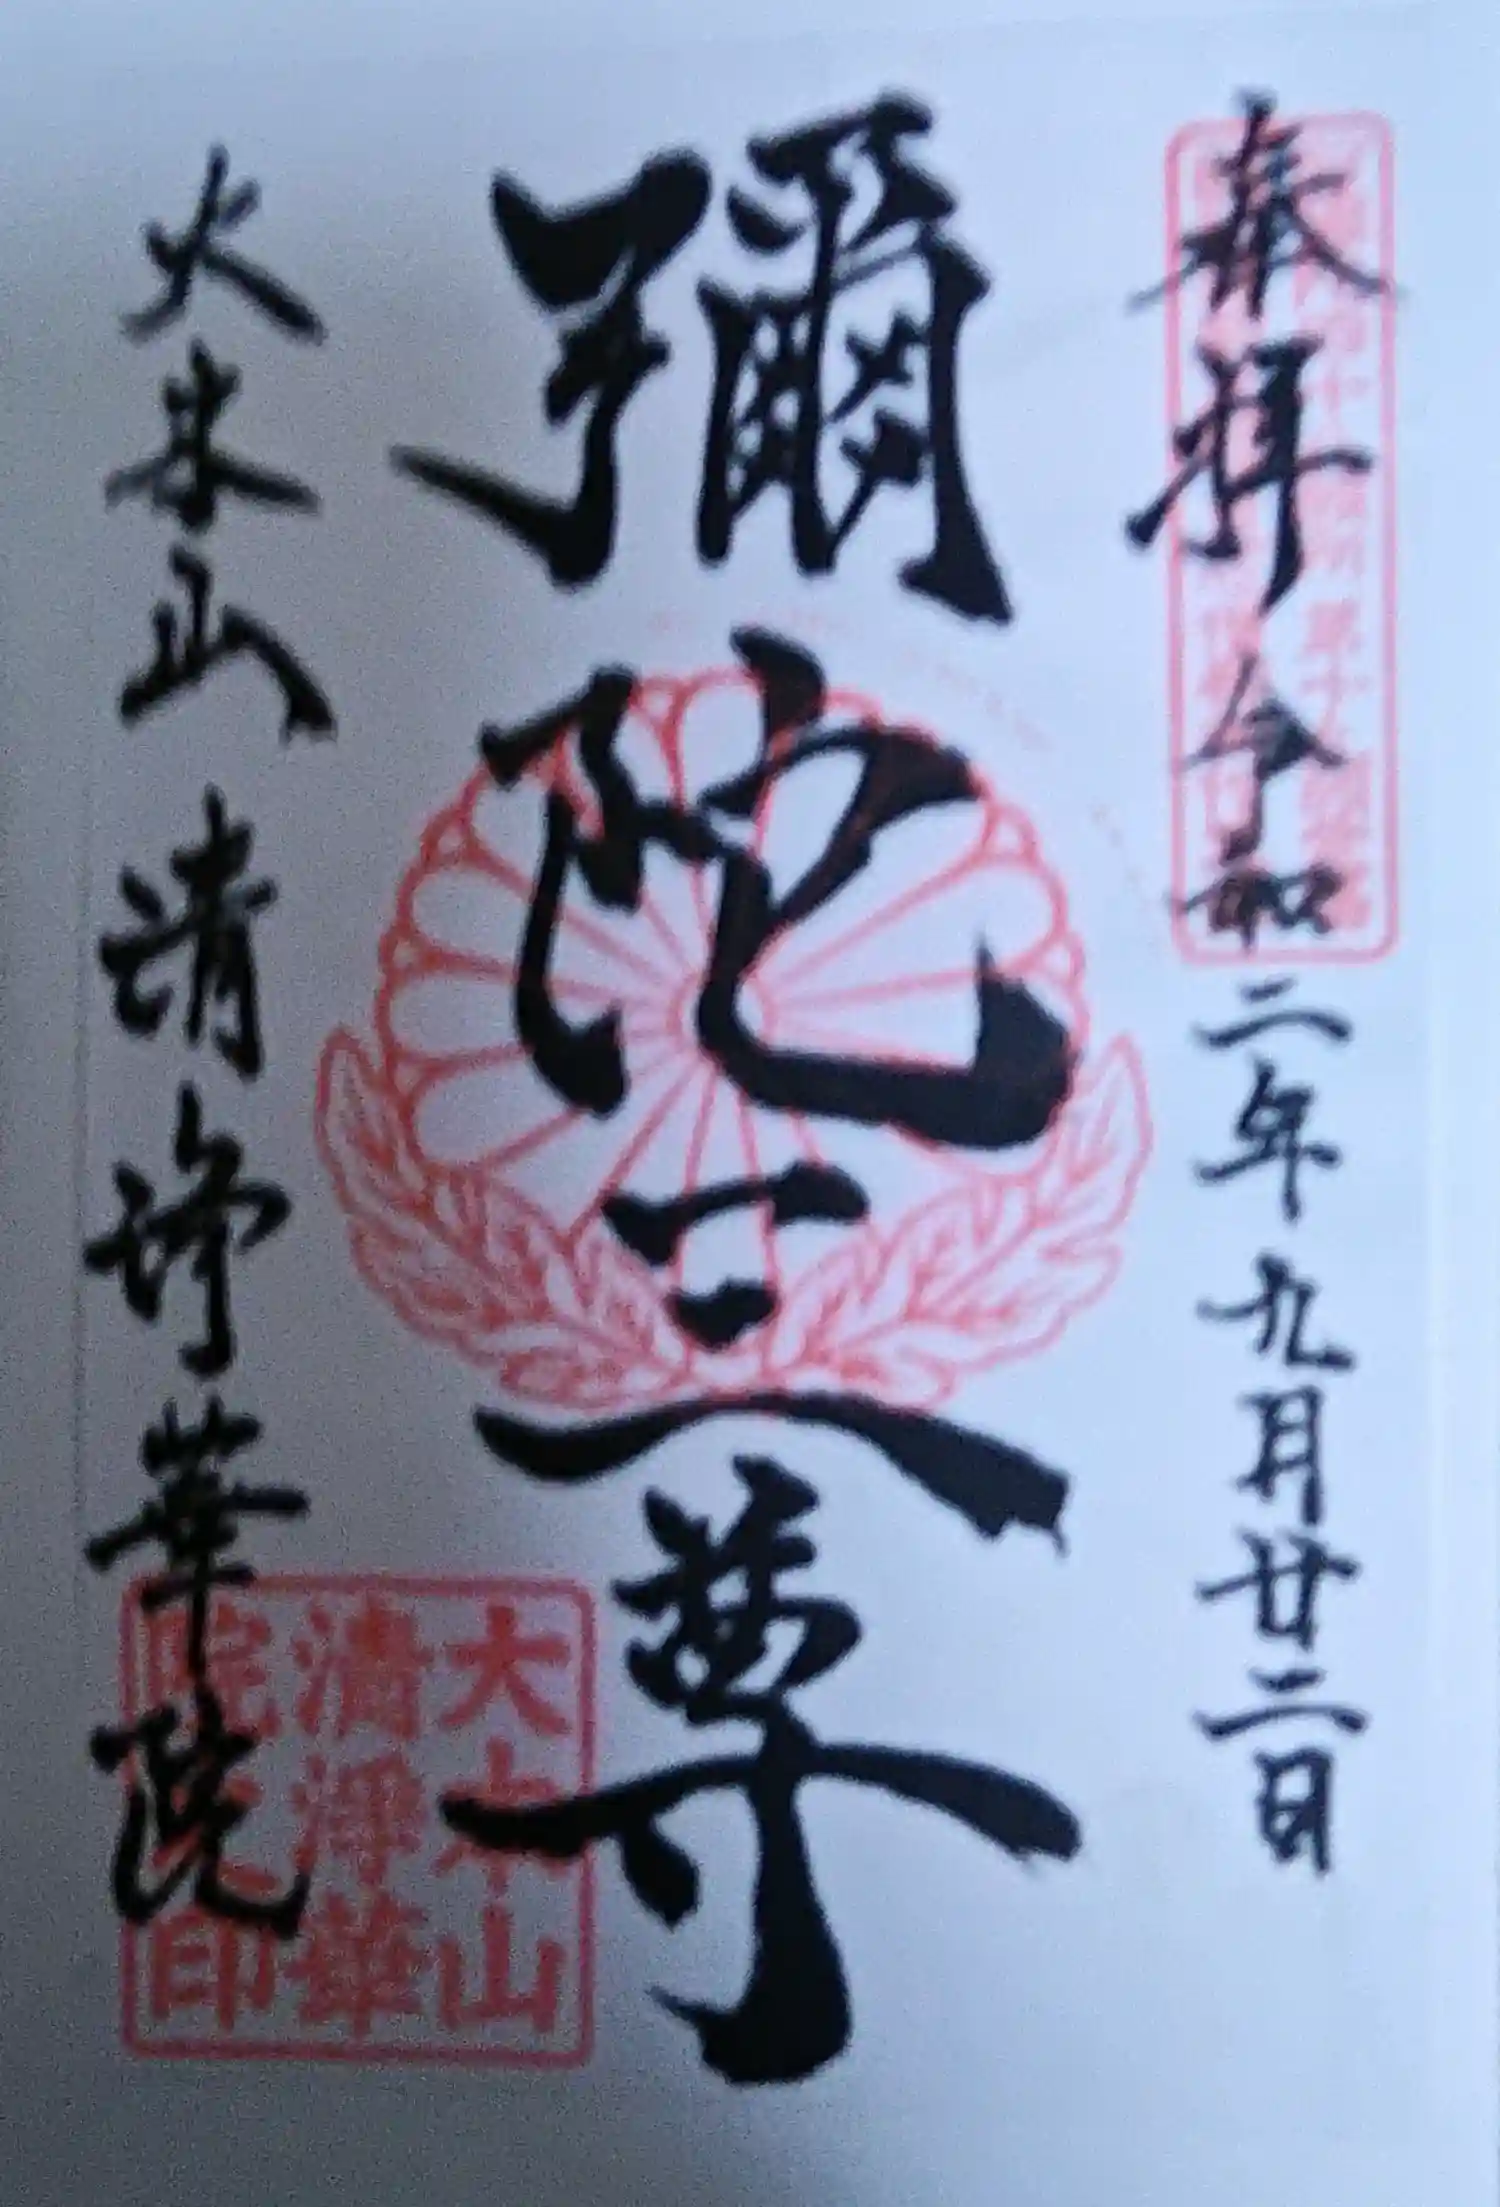 奉拝 令和二年九月廿二日
彌陀三尊
大本山 清浄華院
大本山
清淨華
院之印